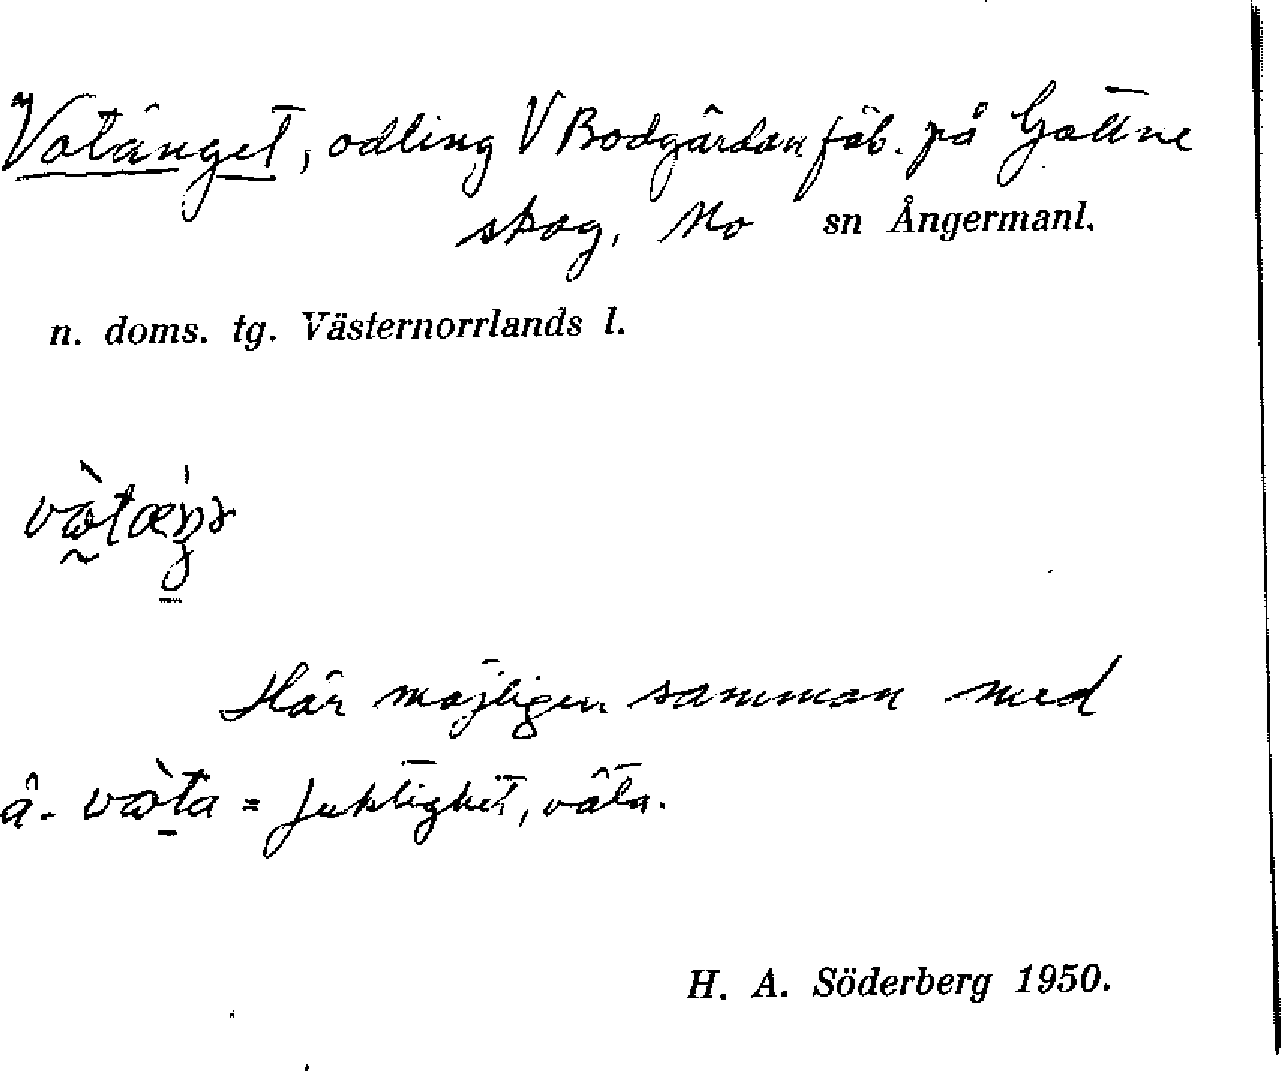 Votänget, odling V Bodgården fäb. på Gottne
skog, Mo sn Ångermanl.
n. doms. tg. Västernorrlands l.
Här möjligen samman med
= fuktighet, väta.
H. A. Söderberg 1950.